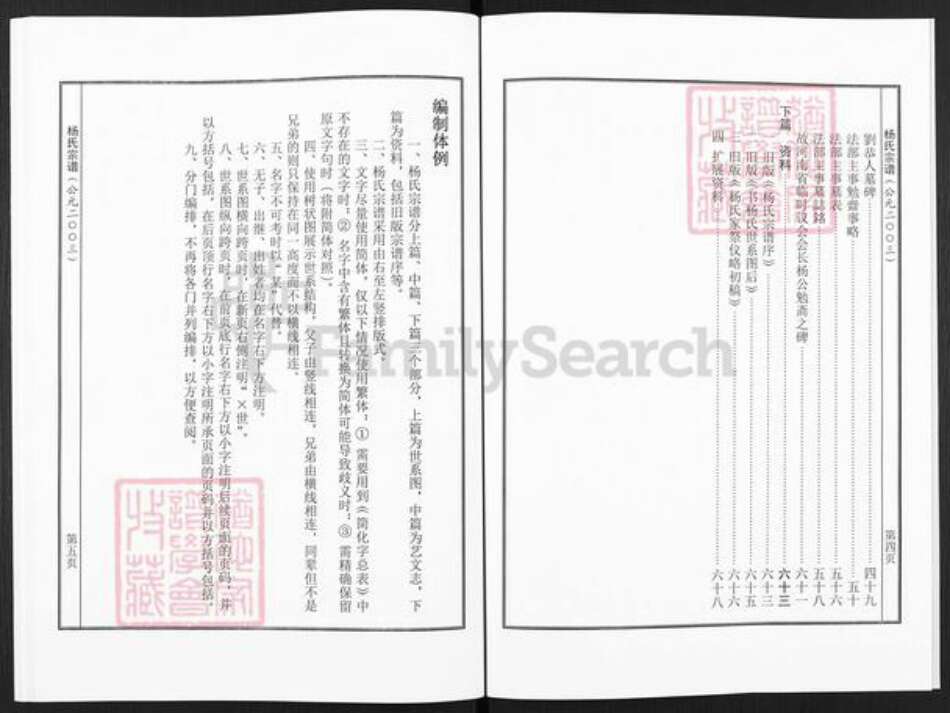 杨氏宗谱（公元二〇〇三）
第四页
劉恭人墓碑 四十九
法部主事勉齋事略 五十
法部主事墓表 五十六
法部主事墓誌銘 五十八
故河南省临时议会会长杨公勉斋之碑 六十一
下篇 资料 六十三
一 旧版《杨氏宗谱序》 六十三
二 旧版《书杨氏世系图后》 六十五
三 旧版《杨氏家祭仪略初稿》 六十六
四 扩展资料 六十八
编制体例
一、杨氏宗谱分上篇、中篇、下篇三个部分，上篇为世系图，中篇为艺文志，下
篇为资料，包括旧版宗谱序等。
二、杨氏宗谱采用由右至左竖排版式。
三、文字尽量使用简体，仅以下情况使用繁体：① 需要用到《简化字总表》中
不存在的文字时；② 名字中含有繁体且转换为简体可能导致歧义时；③ 需精确保留
原文字句时（将附简体对照）。
四、使用树状图展示世系结构，父子由竖线相连，兄弟由横线相连，同辈但不是
兄弟的则只保持在同一高度而不以横线相连。
五、名字不可考时以“某”代替。
六、无子、出继、出姓者均在名字右下方注明。
七、世系图横向跨页时，在新页右侧注明“×世”。
八、世系图纵向跨页时，在前页底行名字右下方以小字注明后续页面的页码，并
以方括号包括，在后页顶行名字右下方以小字注明所承页面的页码并以方括号包括，
九、分门编排，不再将各门并列编排，以方便查阅。
杨氏宗谱（公元二〇〇三）
第五页
FamilySearch